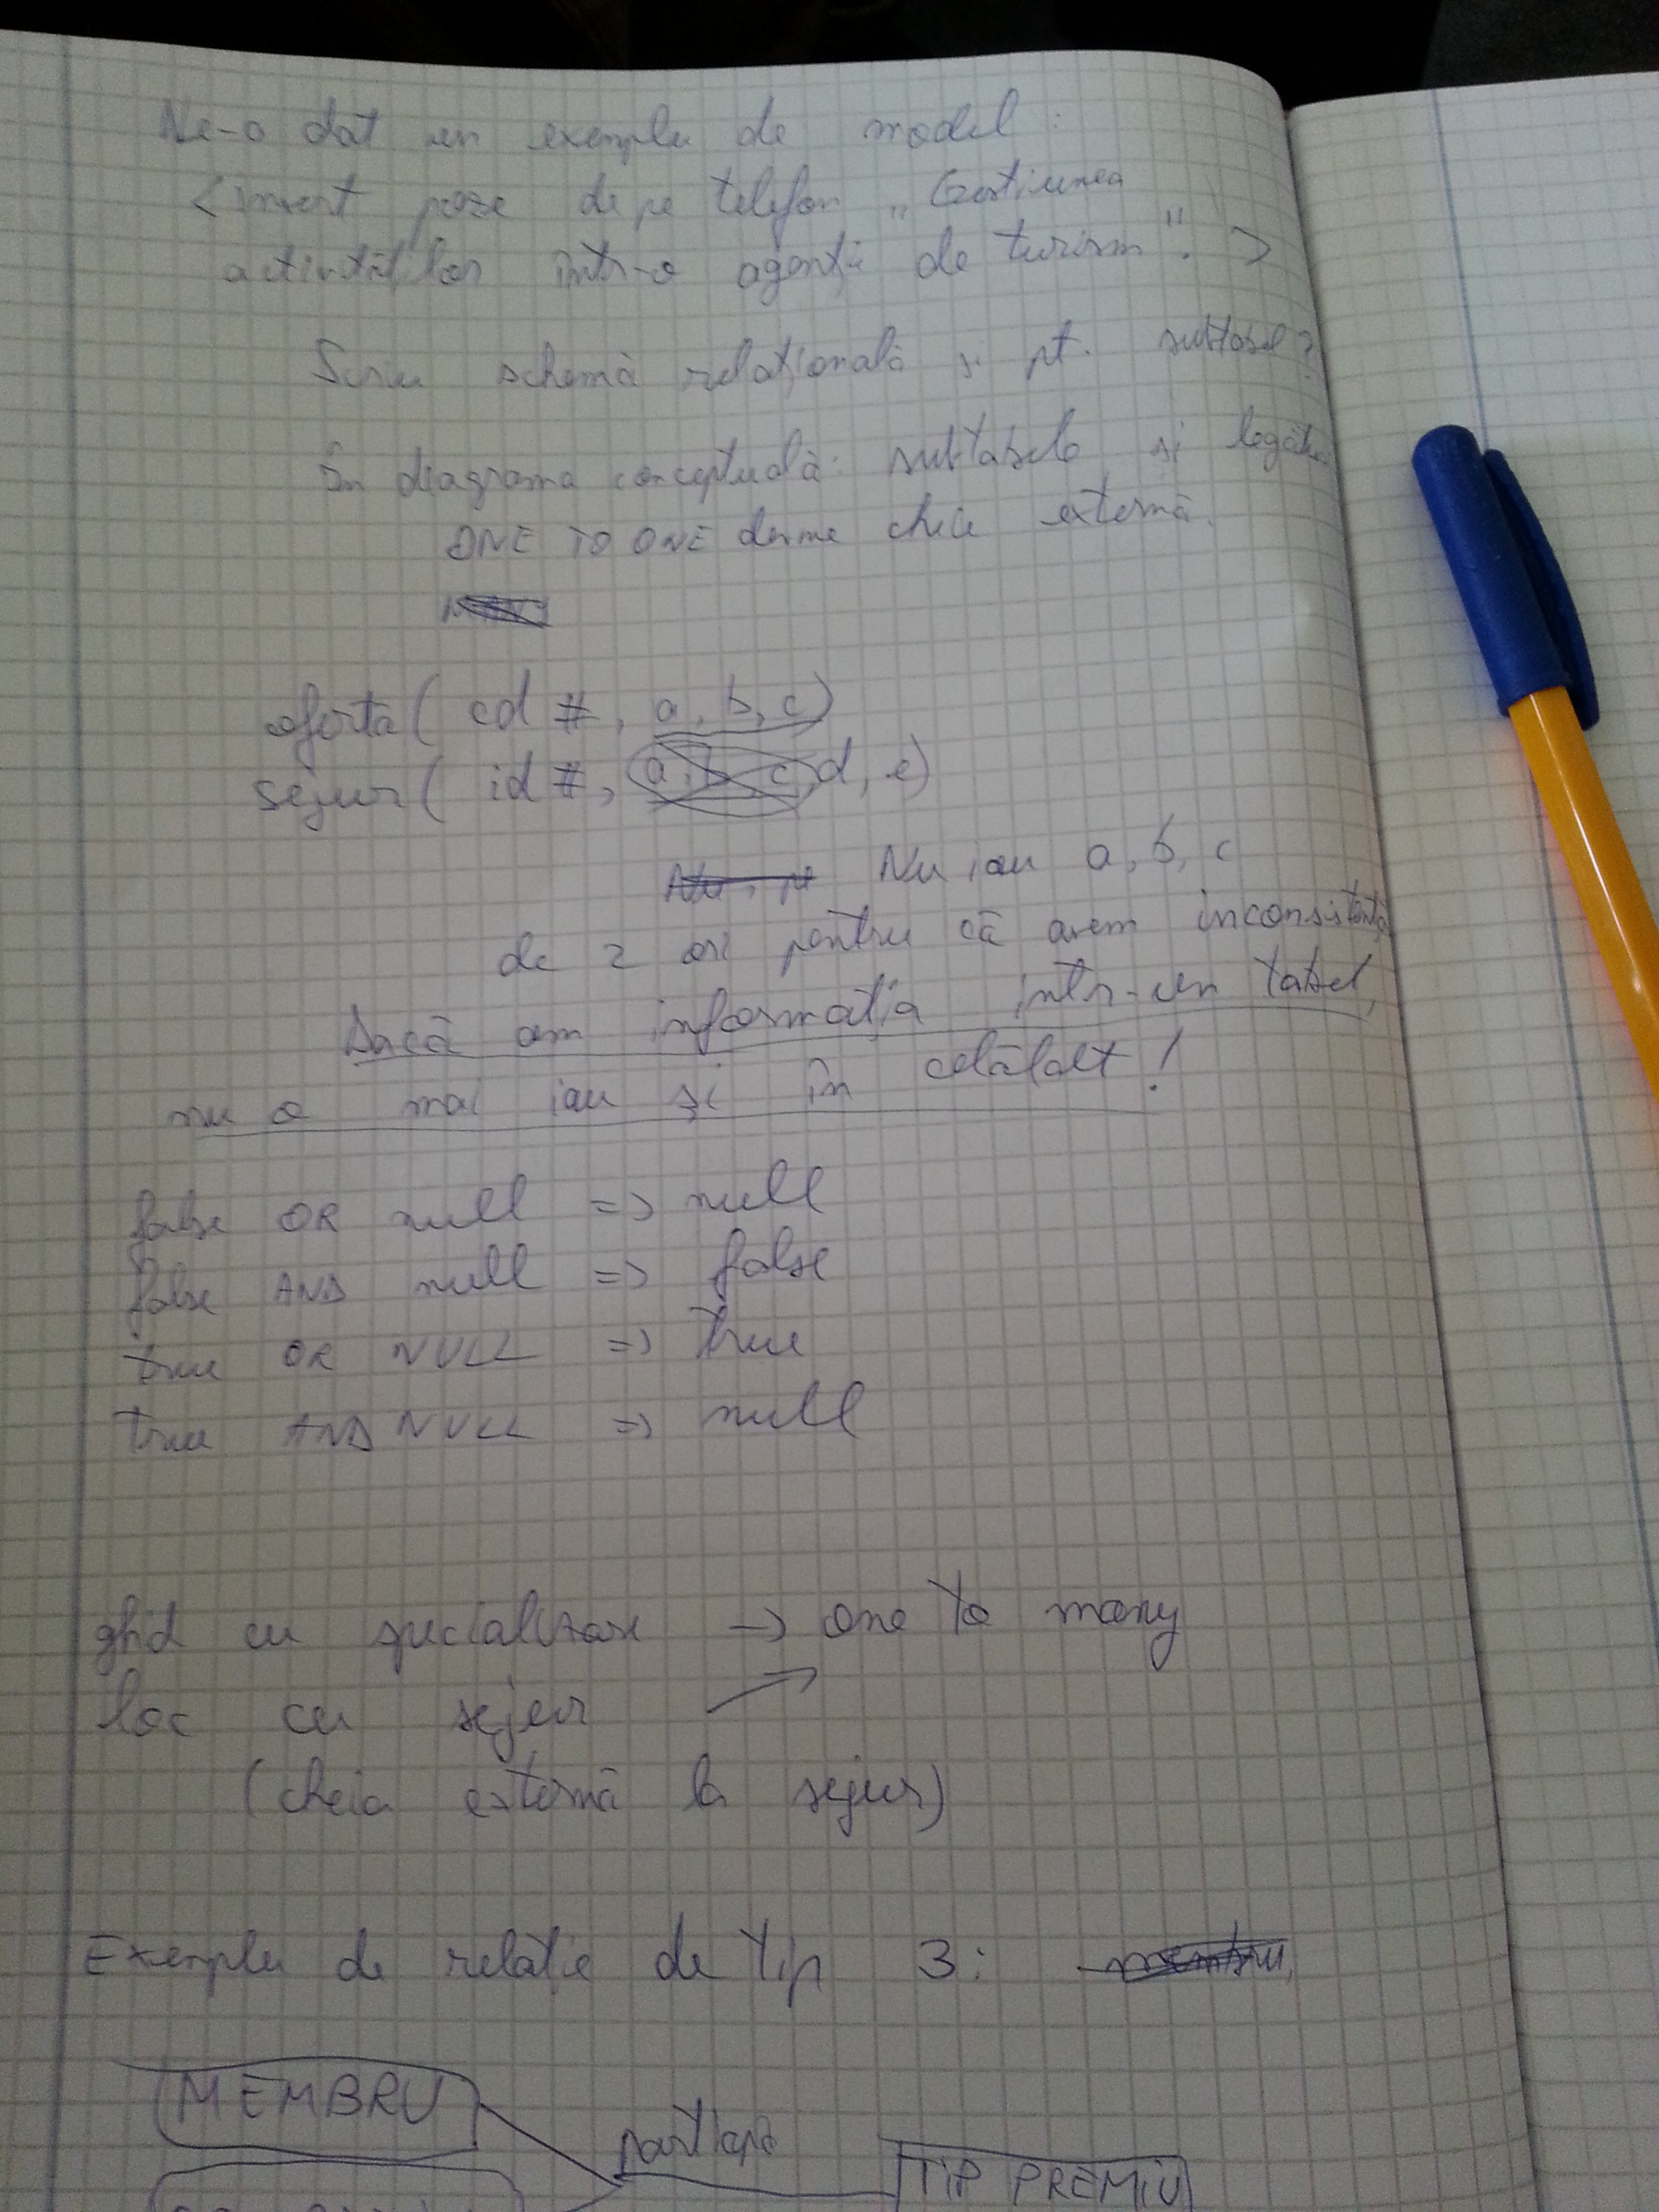 Ne-a dat un exemplu de model :
<insert poze de pe telefon „Gestiunea
activităților într-o agenție de turism". >
Scriu schemă relațională și pt. subtabel?
În diagrama conceptuală: subtabele și legături
ONE TO ONE devine cheie externă.
oferta( cd #, a, b, c)
sejur( id #, a, b, c, d, e)
Nu iau a, b, c
de 2 ori pentru că avem inconsistență
Dacă am informația într-un tabel,
nu o mai iau și în celălalt!
false OR null => null
false AND null => false
true OR NULL => true
true AND NULL => null
ghid cu specializare -> one to many
loc cu sejur
(cheia externă la sejur)
Exemplu de relație de tip 3: membru,
MEMBRU
participă
TIP PREMIU